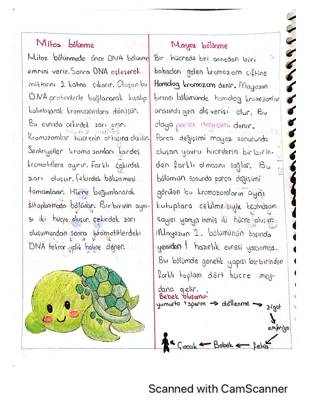 Mitoz bölünme
Mitoz bölünmede önce DNA bölünme
emrini verir. Sonra DNA eşleserek
miktarını 2 katına çıkarır. Oluşan bu
DNA proteinlerle bağlanarak kısalıp
kalınlaşarak kromozomlara dönüşür.
Bu esnada çekirdek zarı erir.
Kromozomlar hücrenin ortasına dizilir.
Sentriyoller kromozomları kardeş
kromatitlere ayırır. Farklı çekirdek
zarı oluşur. Çekirdek bölünmesi
tamamlanır. Hücre boğumlanarak
sitoplazmada bölünür. Birbirinin aynı-
sı iki hücre oluşur. Çekirdek zarı
oluşumundan sonra kromatitlerdeki
DNA tekrar iplik haline döner.
Mayoz bölünme
Bir hücrede biri anneden biri
babadan gelen kromozom çiftine
Homolog kromozom denir. Mayozun
birinci bölümünde homolog kromozomlar
arasında gen alış verişi olur. Bu
olaya parça değişimi denir.
Parça değişimi mayoz sonucunda
oluşan yavru hücrelerin birbirin-
den farklı olmasını sağlar. Bu
bölünme sonunda parça değişimi
görülen bu kromozomların aynı
kutuplara çekilmesiyle kromozom
sayısı yarıya inmiş iki hücre oluşur.
Mayozun 2. bölümünün başında
yeniden hazırlık evresi yaşanmaz.
Bu bölümde genetik yapısı birbirinden
farklı toplam dört hücre mey-
dana gelir.
Bebek oluşumu:
yumurta + sperm → döllenme → zigot
embriyo
Çocuk ← Bebek ← Fetüs
Scanned with CamScanner